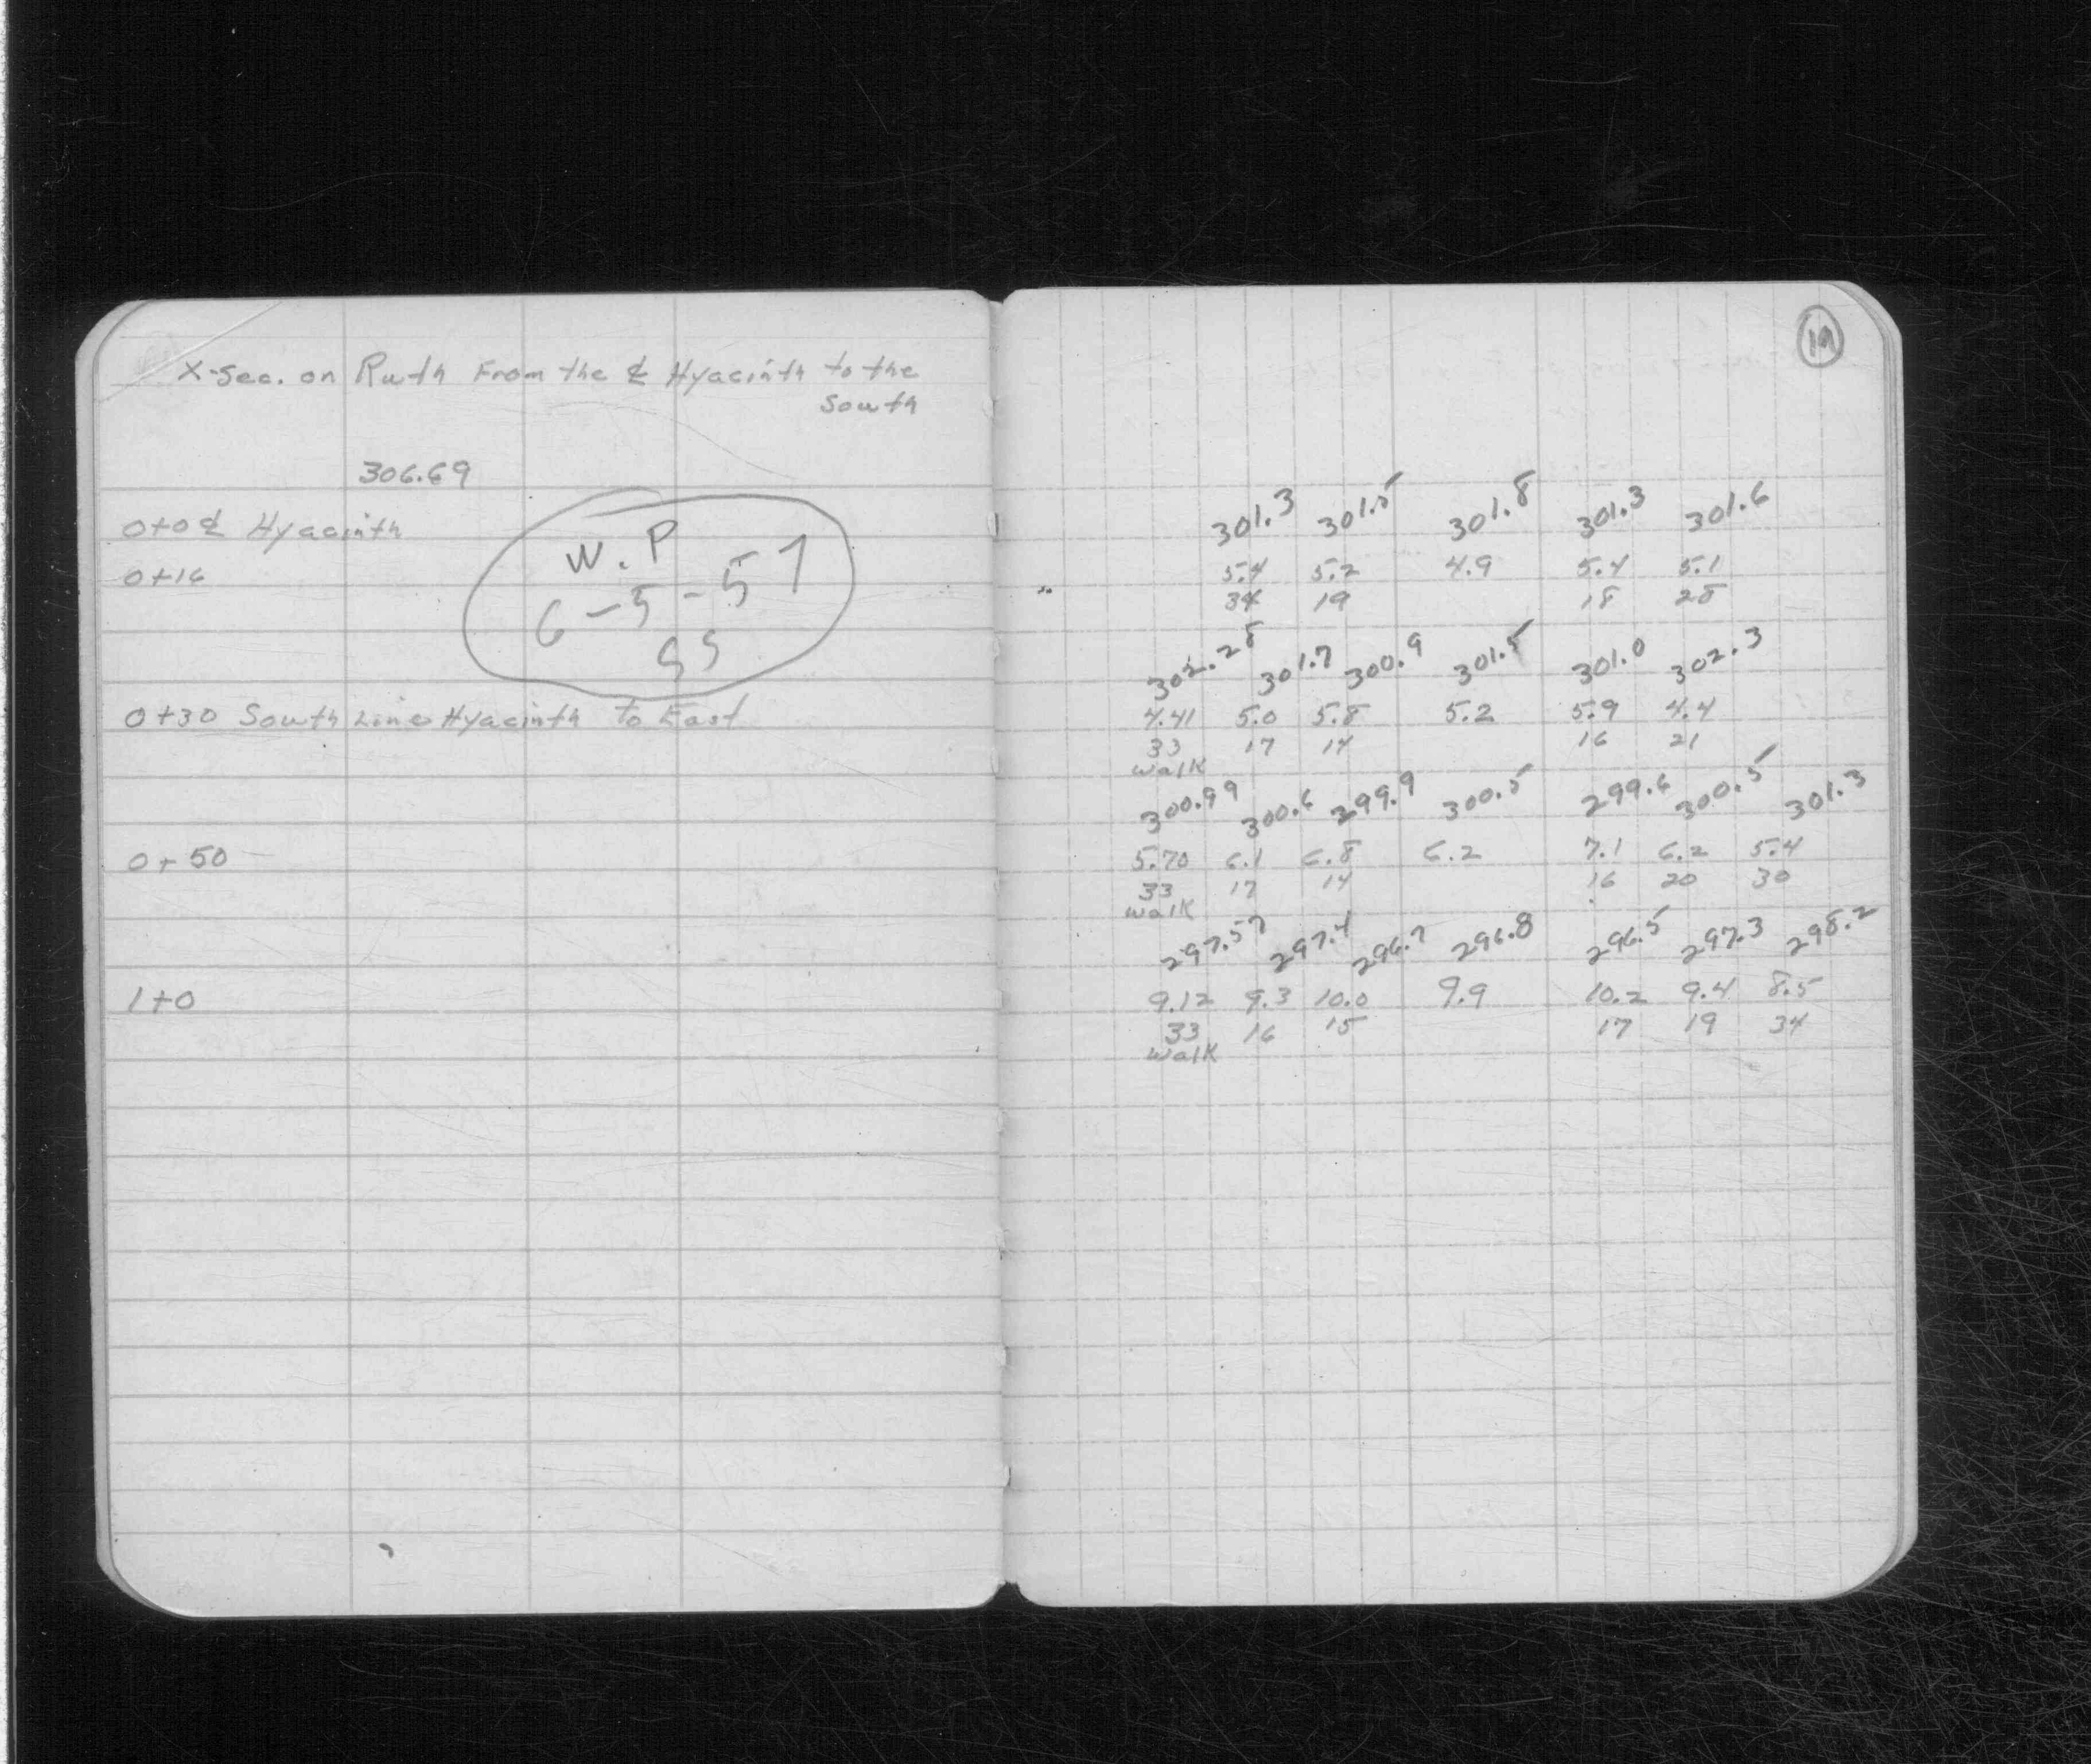 X-Sec. on Ruth From the ℄ Hyacinth to the
South
306.69
0+0 ℄ Hyacinth
0+16
W.P
6-5-57
SS
0+30 South Line Hyacinth to East
0+50
1+0
19
301.3 301.5 301.8 301.3 301.6
5.4 5.2 4.9 5.4 5.1
34 19 18 28
302.28 301.7 300.9 301.5 301.0 302.3
4.41 5.0 5.8 5.2 5.9 4.4
33 17 14 16 21
walk
300.99 300.6 299.9 300.5 299.6 300.5 301.3
5.70 6.1 6.8 6.2 7.1 6.2 5.4
33 17 14 16 20 30
walk
297.57 297.4 296.7 296.8 296.5 297.3 298.2
9.12 9.3 10.0 9.9 10.2 9.4 8.5
33 16 15 17 19 34
walk